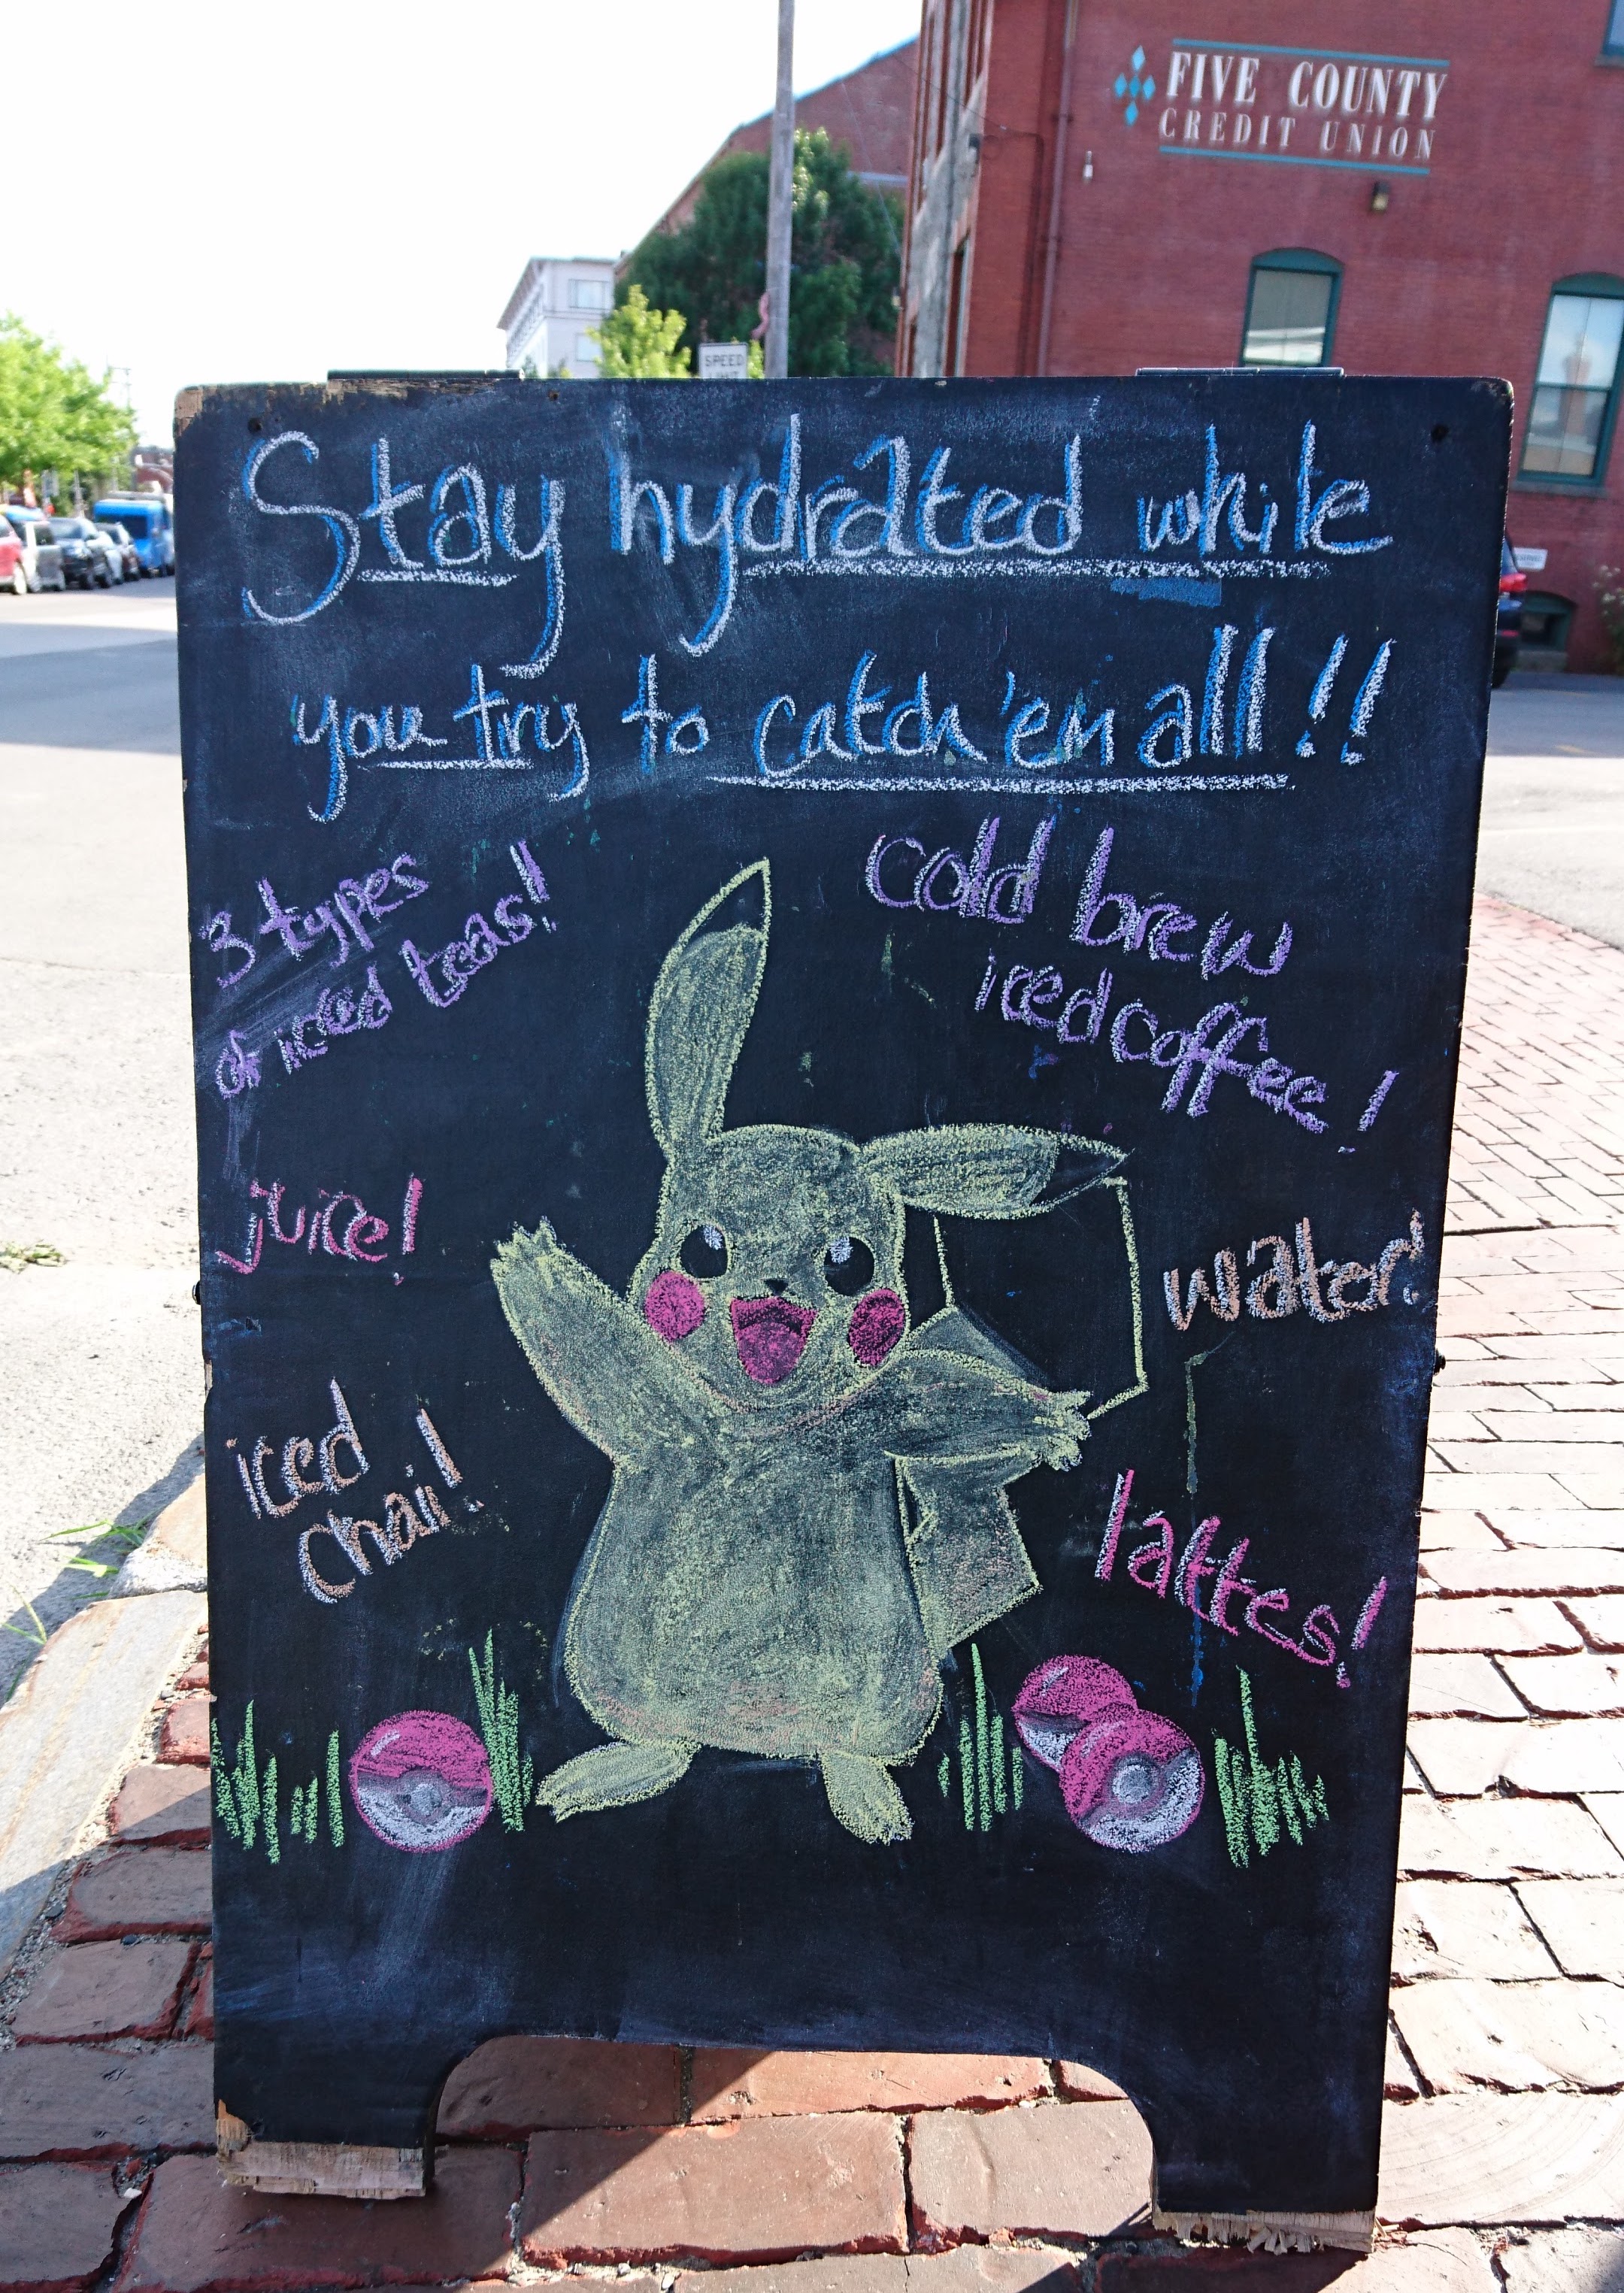 FIVE COUNTY
CREDIT UNION
SPEED
Stay hydrated while
you try to catch 'em all!!
3 types
of iced teas!
cold brew
iced coffee!
juice!
water!
iced
chai!
lattes!